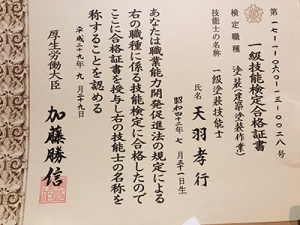 第一七-一-〇六〇-一三-〇〇二八号
一級技能検定合格証書
検定職種 塗装(建築塗装作業)
技能士の名称 一級塗装技能士
氏名 天羽孝行
昭和四十二年 七月三十一日生
あなたは職業能力開発促進法の規定による
右の職種に係る技能検定に合格したので
ここに合格証書を授与し右の技能士の名称を
称することを認める
平成二十九年 九月二十九日
厚生労働大臣 加藤勝信